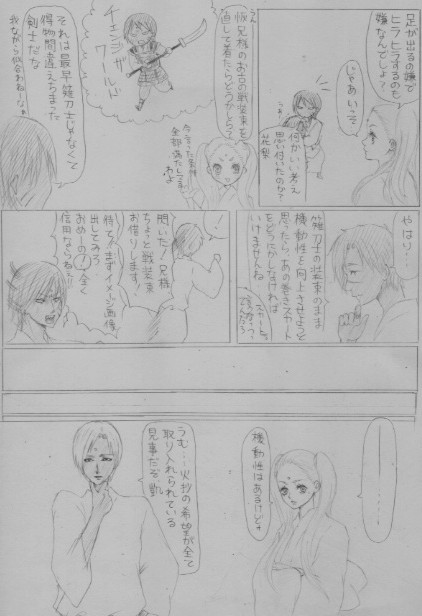 足が出るの嫌で
ヒラヒラするのも
嫌なんでしょ？
じゃあいって
何かいい考え
思い付いたのか？
花梨
仮兄様のお古の戦装束を
直して着たらどうかしら？
今言った条件
全部満たしてる
わよ
チェンジザ
ワールド
それは最早薙刀士じゃなくて
得物間違えちまった
剣士だな
我ながら似合わねーなぁ
やはり…
薙刀士の装束のまま
機動性を向上させようと
思ったら、あの巻きスカート
をどうにかしなければ
いけませんね
スカートじゃ
なくって
なんだろう
閃いた！兄様
ちょっと戦装束
お借りします
待て！まずイメージ画像
出してみろ
おめーの！全く
信用ならねぇ
機動性はあるけどォ
うむ…火抄の希望が全て
取り入れられている
見事だぞ、